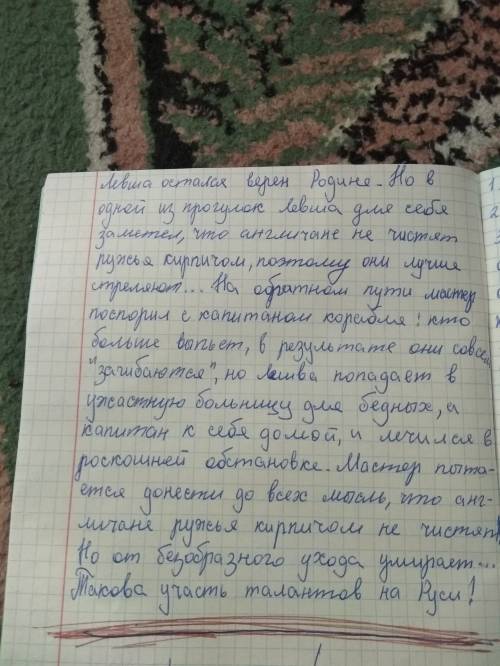 Левша остался верен Родине. Но в
одной из прогулок Левша для себя
заметел, что англичане не чистят
ружья кирпичом, поэтому они лучше
стреляют... На обратном пути мастер
поспорил с капитаном корабля: кто
больше выпьет, в результате они совсем
"загибаются", но Лешва попадает в
ужастную больницу для бедных, а
капитан к себе домой, и лечился в
роскошней обстановке. Мастер пыта-
ется донести до всех мысль, что анг-
личане ружья кирпичом не чистят!
Но от безобразного ухода умирает...
Такова участь талантов на Руси!
1
2